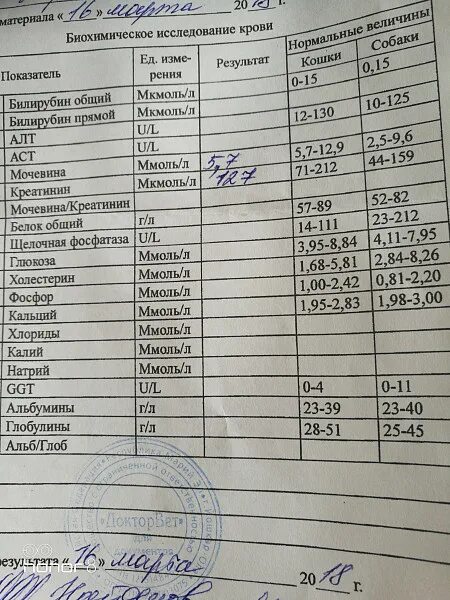 материала « 16 » марта 2018 г.
Биохимическое исследование крови
Показатель Ед. измерения Результат Нормальные величины
Кошки Собаки
Билирубин общий Мкмоль/л 0-15 0,15
Билирубин прямой Мкмоль/л
АЛТ U/L 12-130 10-125
АСТ U/L
Мочевина Ммоль/л 5,7 5,7-12,9 2,5-9,6
Креатинин Мкмоль/л 127 71-212 44-159
Мочевина/Креатинин
Белок общий г/л 57-89 52-82
Щелочная фосфатаза U/L 14-111 23-212
Глюкоза Ммоль/л 3,95-8,84 4,11-7,95
Холестерин Ммоль/л 1,68-5,81 2,84-8,26
Фосфор Ммоль/л 1,00-2,42 0,81-2,20
Кальций Ммоль/л 1,95-2,83 1,98-3,00
Хлориды Ммоль/л
Калий Ммоль/л
Натрий Ммоль/л
GGT U/L 0-4 0-11
Альбумины г/л 23-39 23-40
Глобулины г/л 28-51 25-45
Альб/Глоб
«ДокторВет»
для
документов
результата « 16 » марта 2018 г.
honor